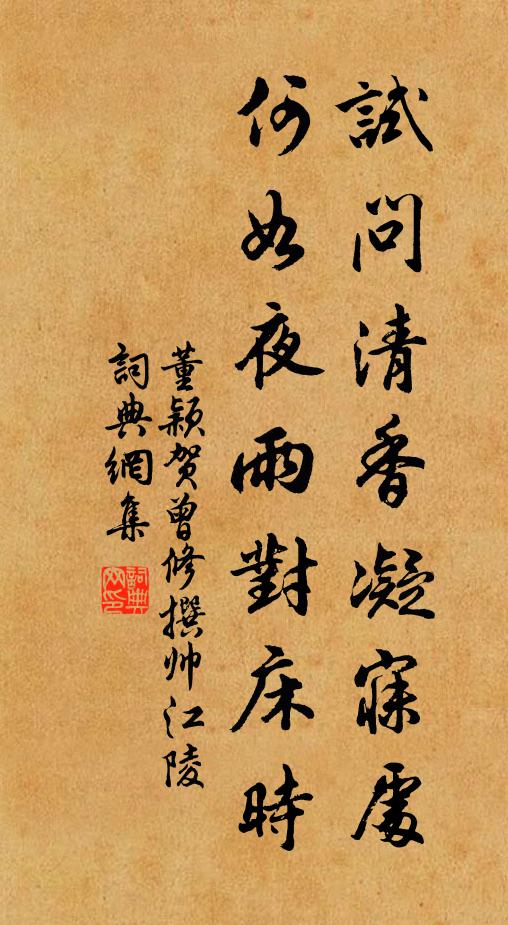 試問清香凝寐處
何如夜雨對床時
董穎賀曾修撰帅江陵
詞典網集
詞典網印